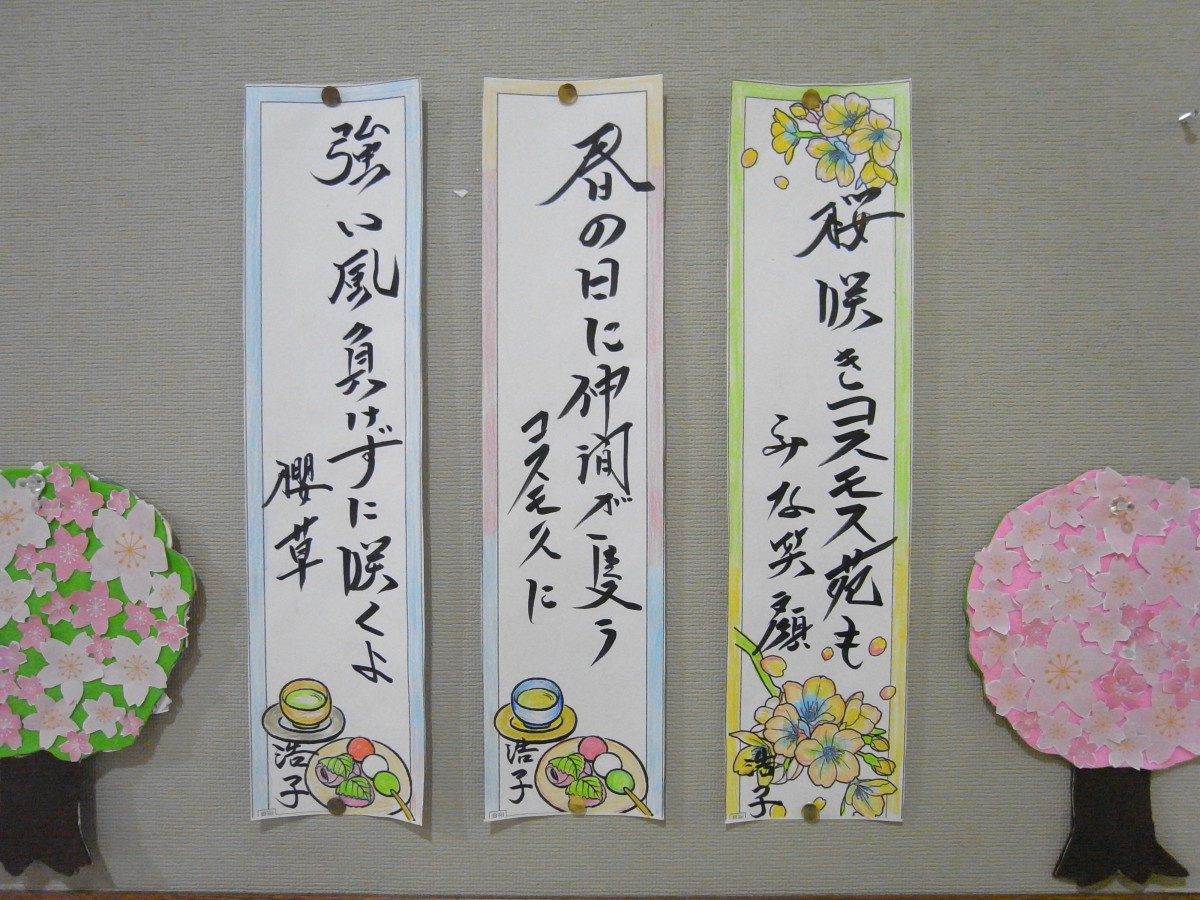 桜咲きコスモス苑も
みな笑顔
浩子
春の日に仲間が集う
コスモスに
浩子
強い風負けずに咲くよ
櫻草
浩子